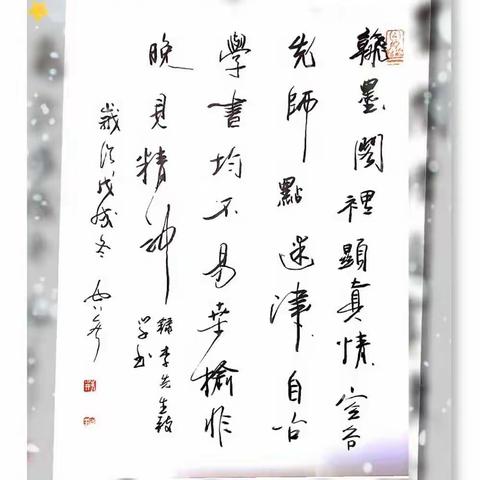 翰墨閣裡顯真情空谷
先師點迷津自古
學書均不易桑榆非
晚見精神
錄李先生致
学书
歲次戊戌冬